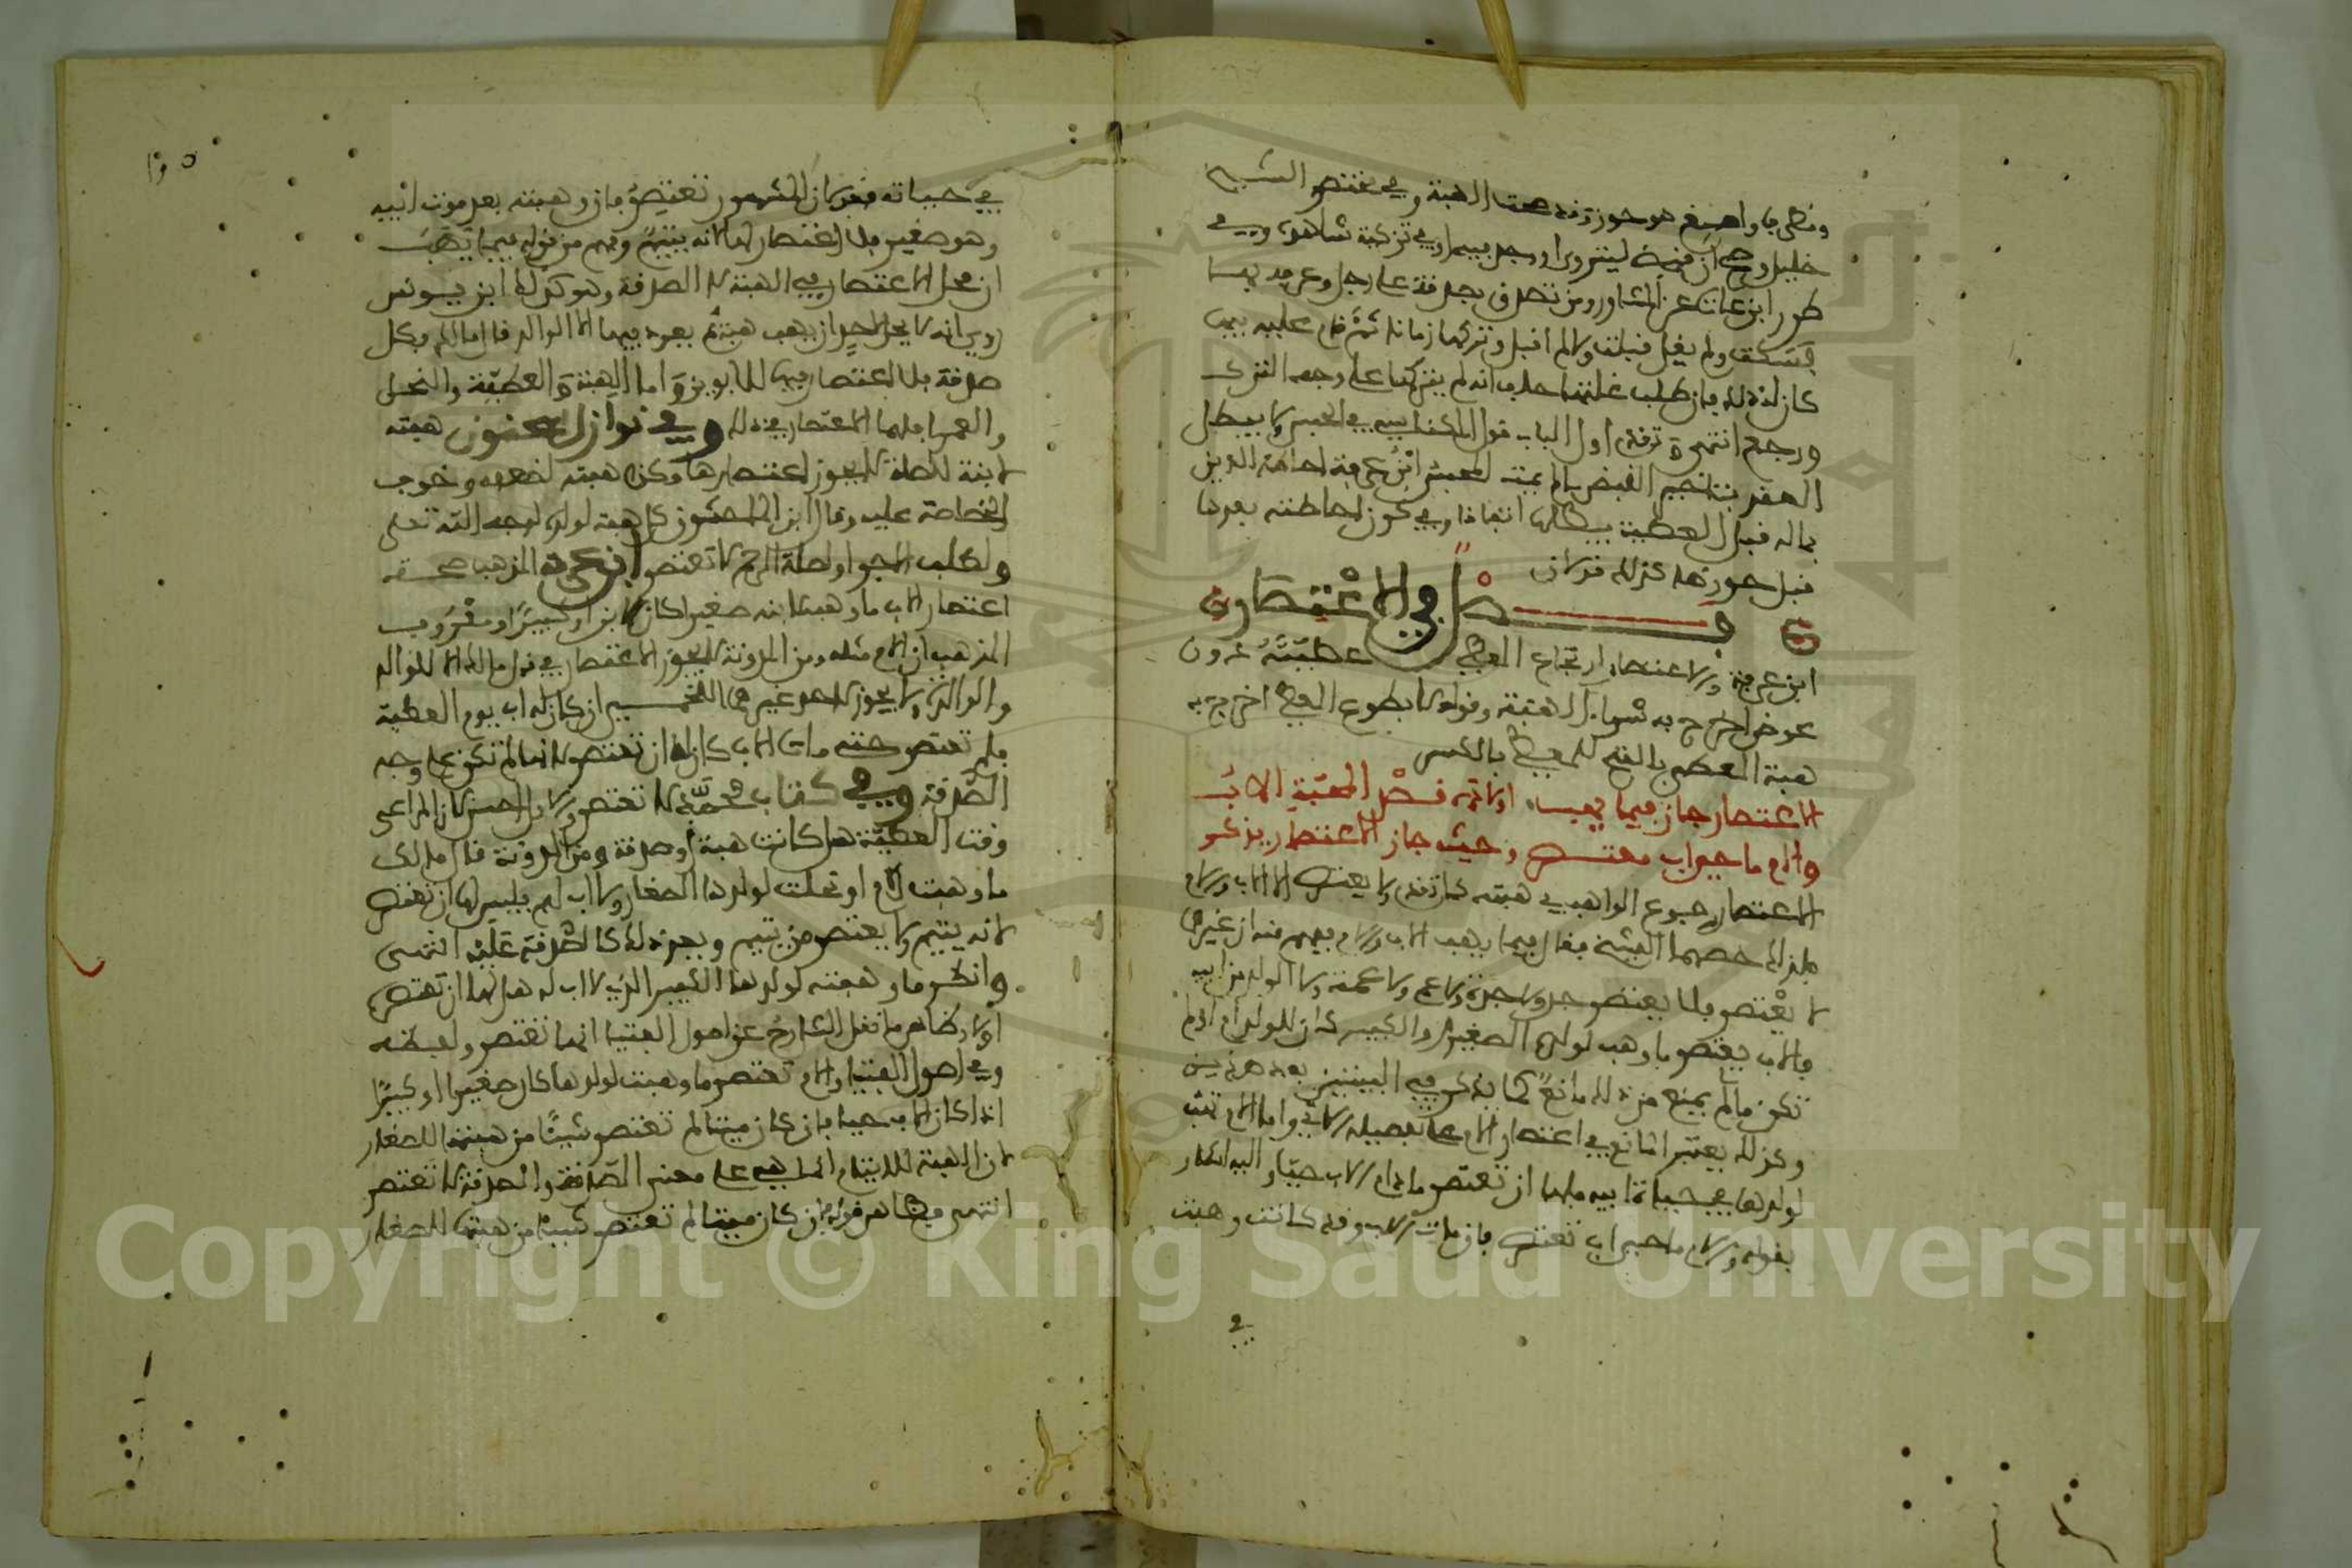 ومطرف واصبغ هو حوز وقد صحت الهبة وفي مختصر الشيخ
خليل وصح ان قبض ليتروى او وجد فيه او في تزكية شاهده وفي
طرر ابن عات عن المشاور ومن تصدق بصدقة على رجل وعرفه بها
فسكت ولم يقل قبلت ولا لم اقبل وتركها زمانا ثم قام عليه فيها
كان له ذلك فان طلب غلتها حلف انه لم يتركها على وجه الترك
ورجع انتهى وتقدم اول الباب قول المكناسي في الحبس ولا يبطل
العقد بتاخير القبض ما لم يمت المحبس ابن عرفة احاطة الدين
بماله قبل العطية يبطلها اتفاقا وفي كون احاطته بعدها
قبل حوزها كذلك قولان
فصل في الاعتصار
ابن عرفة والاعتصار ارتجاع المعطي عطيته دون
عوض اخرج به ثواب الهبة وقوله لا بطوع المعطى اخرج به
هبة المعطى بالفتح للمعطي بالكسر
الاعتصار جاز فيما يهب اولاده قصد المحبة الاب
والام ما حي اب تعتصر وحيث جاز الاعتصار يذكر
الاعتصار رجوع الواهب في هبته كما تقدم ولا يعتصر الا الاب والام
فلذلك خصهما الشيخ فقال فيما يهب الاب والام يفهم منه ان غيرهما
لا يعتصر فلا يعتصر جد ولا جدة ولا عم ولا عمة ولا الولد من ابيه
فالاب يعتصر ما وهب لولده الصغير والكبير كان للولد ام ام لم
تكن ما لم يمنع من ذلك مانع كما يذكر فيه البيتين بعد هذين
وكذلك يعتبر المانع في اعتصار الام على تفصيله الاتي واما الام تهب
لولدها في حياة ابيه فلها ان تعتصر ما دام الاب حيا واليه اشار
بقوله والام ما حي اب تعتصر فان مات الاب وقد كانت وهبت
في
في حياته فقولان المشهور تعتصر فان وهبته بعد موت ابيه
وهو صغير فلا اعتصار لها لانه يتيم وفهم من قوله فيما يهب
ان محل الاعتصار في الهبة لا الصدقة وهو كذلك ابن يونس
روي انه لا يحل لاحد ان يهب هبة ثم يعود فيها الا الوالد قال مالك فكل
صدقة فلا اعتصار فيها للابوين واما الهبة والعطية والنحل
والعمرى فلهما الاعتصار في ذلك وفي نوازل سحنون هبته
لابنة للصلة لا يجوز اعتصارها وكذا هبته لضعفه وخوف
الخصاصة عليه وقال ابن الماجشون كل هبة لولده لوجه الله تعلى
ولطلب الاجر او لصلة الرحم لا تعتصر ابن عرفة المذهب صحة
اعتصار الاب ما وهب لابنه صغيرا كان الابن او كبيرا ومعروف
المذهب ان الام مثله ومن المدونة لا يجوز الاعتصار في قول مالك الا للوالد
والوالدة ولا يجوز لاحد غيرهما اللخمي ان كان له اب يوم العطية
فلم تعتصر حتى مات الاب كان لها ان تعتصر لانها لم تكن على وجه
الصدقة وفي كتاب محمد لا تعتصر والاول احسن لان المراعى
وقت العطية هل كانت هبة او صدقة ومن المدونة قال مالك
ما وهبت الام او نحلت لولدها الصغار ولا اب لهم فليس لها ان تعتصر
لانه يتيم ولا يعتصر من يتيم ويعد ذلك كالصدقة عليه انتهى
وانظر ما وهبته لولدها الكبير الذي لا اب له هل لها ان تعتصر
اولا وظاهر ما نقل الشارح عن اصول الفتيا انها تعتصر ولفظه
وفي اصول الفتيا والام تعتصر ما وهبت لولدها كان صغيرا او كبيرا
اذا كان الاب حيا فان كان ميتا لم تعتصر شيئا من هبتها للصغار
لان الهبة للايتام انما هي على معنى الصدقة والصدقة لا تعتصر
انتهى فظاهر قوله فان كان ميتا لم تعتصر شيئا من هبتها للصغار